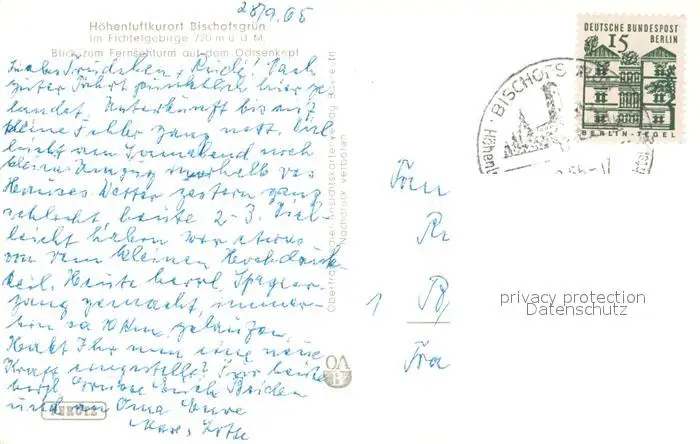 28/9.65
Höhenluftkurort Bischofsgrün
im Fichtelgebirge 720 m ü. d. M.
Blick zum Fernsehturm auf dem Ochsenkopf
Liebes Trudchen, Rudi! Nach
guter Fahrt pünktlich hier ge
landet. Unterkunft bis auf
kleine Fehler ganz nett.
am Sonnabend noch
kleinen Umzug innerhalb des
Hauses. Wetter gestern ganz
schlecht, heute 2-3. Viel
leicht haben wir etwas
von dem kleinen Hochdruck
keil. Heute herrl. Spazier
gang gemacht, immer-
hin ca 10 Km. gelaufen.
Habt Ihr nun eine neue
Kraft eingestellt? Für heute
herzl. Grüsse Euch Beiden
und an Oma Eure
Max, Lotte
PERUTZ
Oberfränkischer Ansichtskartenverlag Bayreuth
Nachdruck verboten
OVB
DEUTSCHE BUNDESPOST
BERLIN
15
BERLIN-TEGEL
BISCHOFS
65-17
Frau
1
Fra
privacy protection
Datenschutz